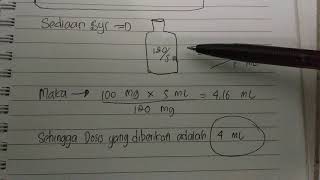 Sediaan Syr =D
120/
5 m
Maka → 100 mg x 5 ml = 4.16 ml
120 mg
Sehingga Dosis yang diberikan adalah 4 ml